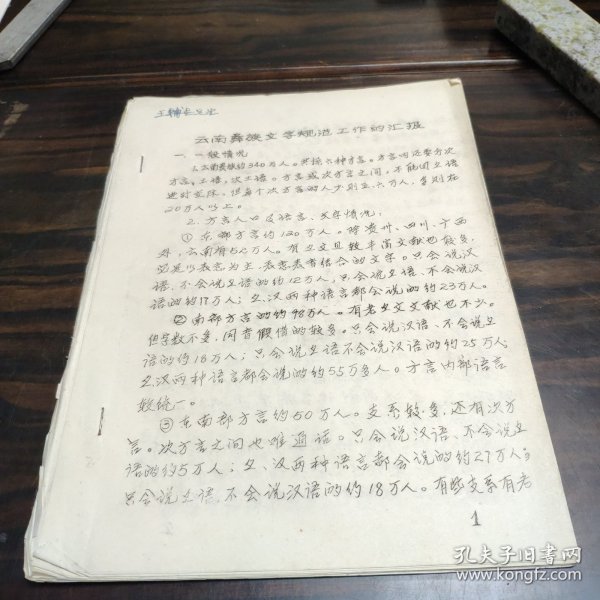 云南彝族文字规范工作的汇报
一、一般情况
1.云南彝族约340万人。共操六种方言。方言间还要分次
方言、土语,次土语。方言或次方言之间,不能用彝语
进行交际,但每个次方言的人少则五、六万人,多则在
20万人以上。
2.方言人口及语言、文字情况:
①东部方言约120万人。除贵州、四川、广西
外,云南有52万人。有彝文且较丰富文献也较多,
必是以表意为主,表意表音结合的文字。只会说汉
语、不会说彝语的约12万人,只会说彝语、不会说汉
语的约17万人;彝汉两种语言都会说的约23万人。
②南部方言的约98万人。有老彝文文献也不少。
但字数不多,同音假借的较多。只会说汉语、不会说彝
语的约18万人;只会说彝语不会说汉语的约25万人
彝汉两种语言都会说的约55万多人。方言内部语言
较统一。
③东南部方言约50万人。支系较多,还有次方
言。次方言之间也难通话。只会说汉语、不会说彝
语的约5万人;彝、汉两种语言都会说的约27万人;
只会说彝语、不会说汉语的约18万人。有些支系有老
1
孔夫子旧书网
www.kongfz.com